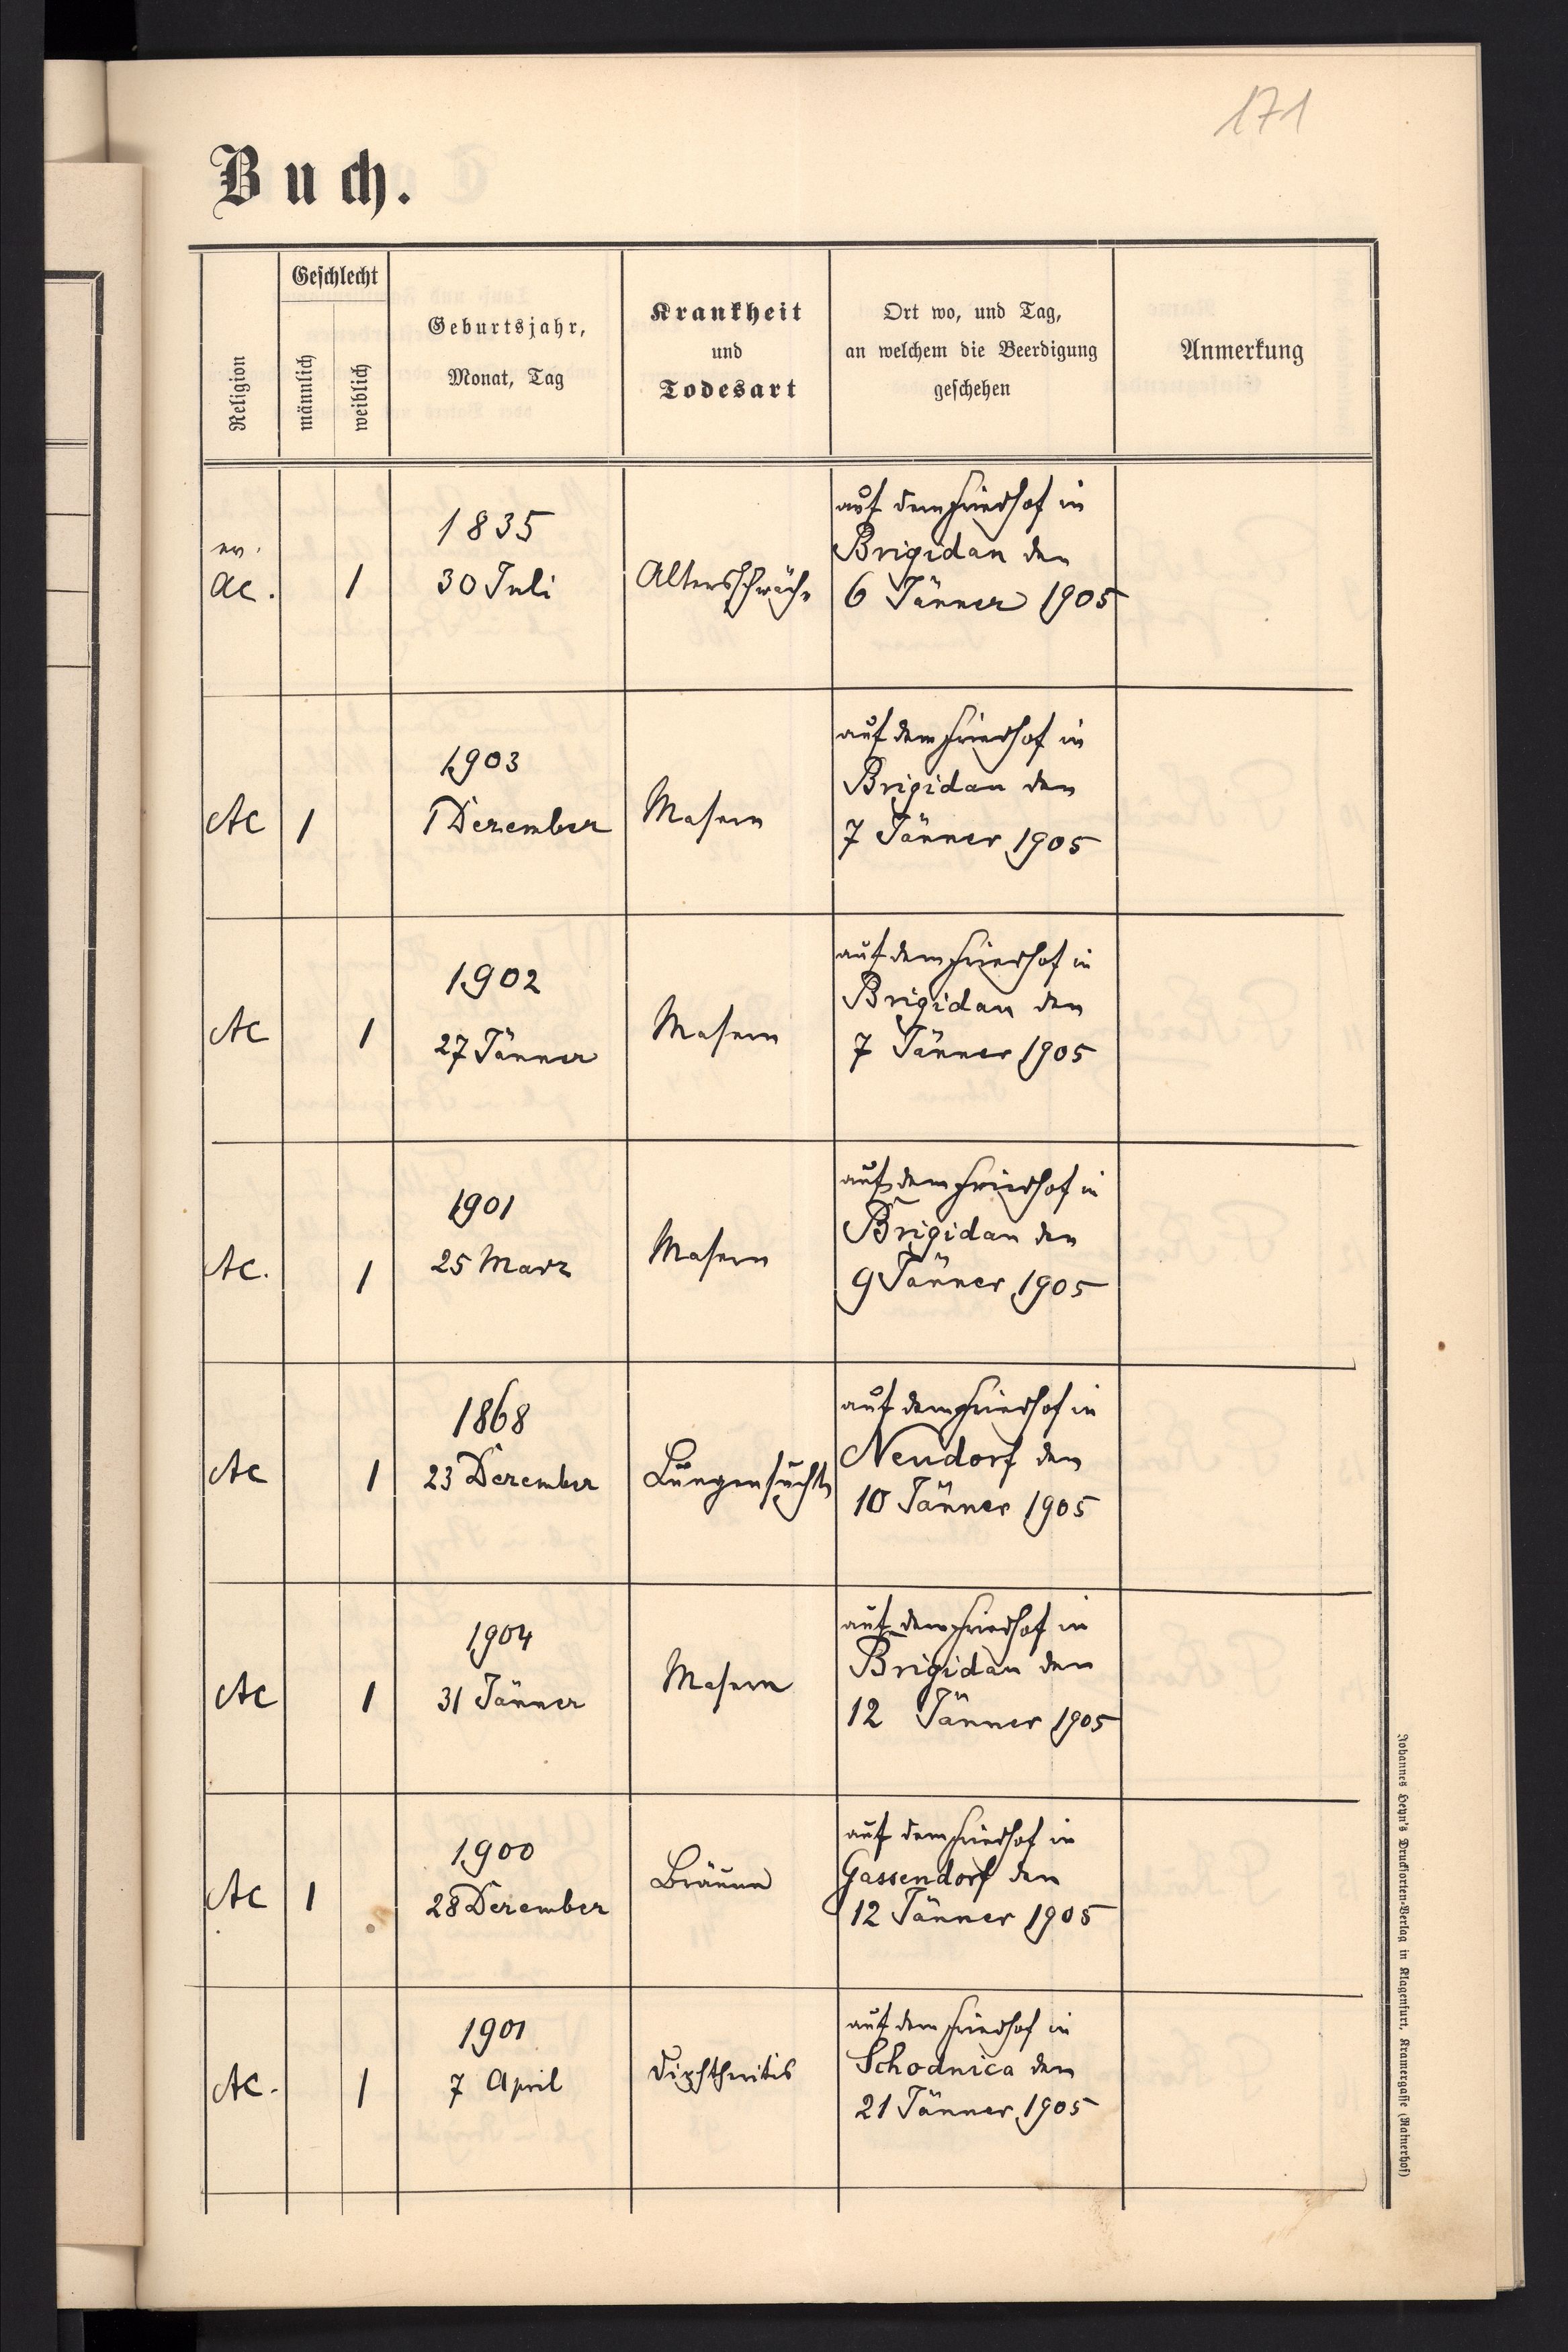 171
Buch.
Religion
Geschlecht
männlich
weiblich
Geburtsjahr,
Monat, Tag
Krankheit
und
Todesart
Ort wo, und Tag,
an welchem die Beerdigung
geschehen
Anmerkung
ev.
AC.
1
1835
30 Juli
Altersschwäche
auf dem Friedhof in
Brigidau den
6 Jänner 1905
AC
1
1903
1 Dezember
Masern
auf dem Friedhof in
Brigidau den
7 Jänner 1905
AC
1
1902
27 Jänner
Masern
auf dem Friedhof in
Brigidau den
7 Jänner 1905
AC.
1
1901
25 März
Masern
auf dem Friedhof in
Brigidau den
9 Jänner 1905
AC
1
1868
23 Dezember
Lungensucht
auf dem Friedhof in
Neudorf den
10 Jänner 1905
AC
1
1904
31 Jänner
Masern
auf dem Friedhof in
Brigidau den
12 Jänner 1905
AC
1
1900
28 Dezember
Bräune
auf dem Friedhof in
Gassendorf den
12 Jänner 1905
AC.
1
1901
7 April
Diphtheritis
auf dem Friedhof in
Schodnica den
21 Jänner 1905
Johannes Heyn's Drucksorten-Verlag in Klagenfurt, Kramergasse (Rainerhof)